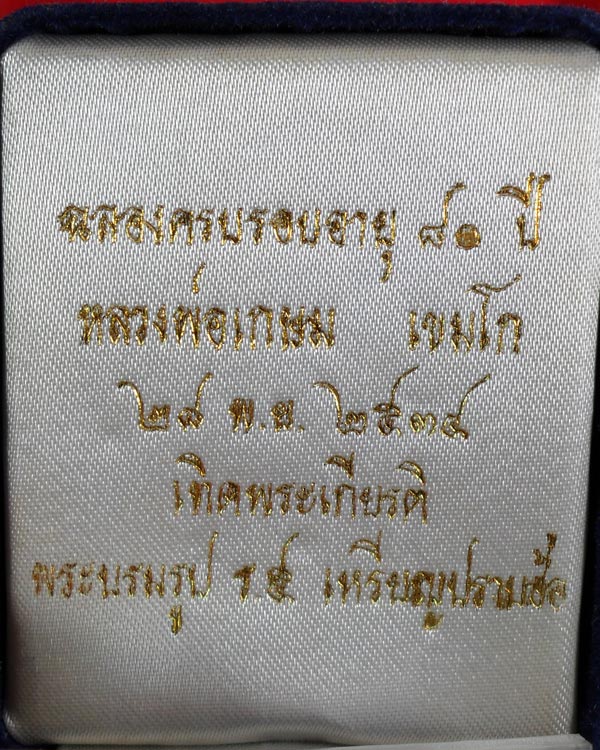 ฉลองครบรอบอายุ ๘๑ ปี
หลวงพ่อเกษม เขมโก
๒๘ พ.ย. ๒๕๓๔
เทิดพระเกียรติ
พระบรมรูป ร.๕ เหรียญปราบฮ่อ